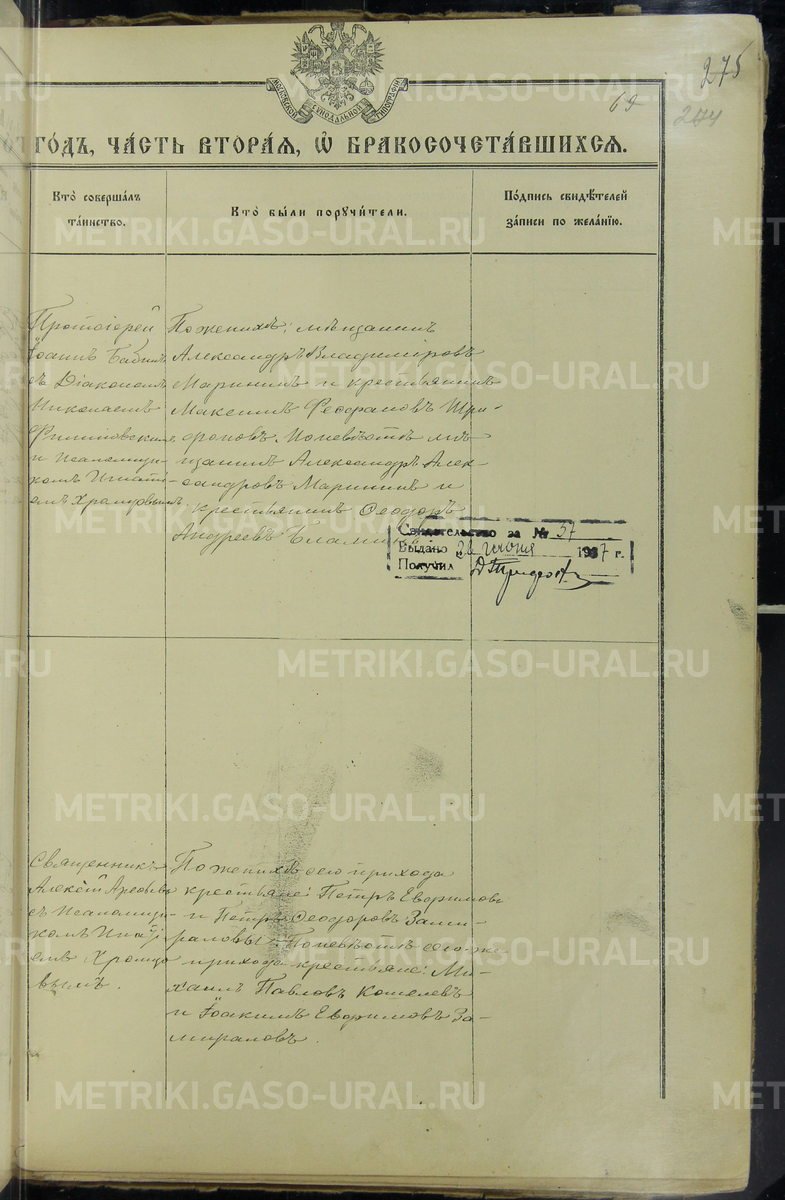 МОСКОВСКОЙ СѴНОДАЛЬНОЙ ТИПОГРАФІИ
275
69
274
ГО́ДЪ, ЧА́СТЬ ВТОРА́Я, Ѡ҆ БРАКОСОЧЕТА́ВШИХСЯ.
Кто̀ соверша́лъ
та́инство.
Кто̀ бы́ли порꙋчи́тели.
По́дпись свидѣ́телей
за́писи по жела́нїю.
Протоіерей
Іоаннъ Бабинъ
съ Діакономъ
Николаемъ
и Псаломщи-
комъ Игнаті-
емъ Храмцовымъ
По женихѣ: мѣщанинъ
Александръ Владиміровъ
Марининъ и крестьянинъ
Максимъ Феофановъ Три-
фоновъ. По невѣстѣ: мѣ-
щанинъ Александръ Алек-
сандровъ Марининъ и
крестьянинъ Ѳеодоръ
Андреевъ
Свидетельство за № 37
Выдано 26 июня 1937 г.
Получил
Священникъ
Алексій
съ Псаломщи-
комъ Игнаті-
емъ Храмцо
вымъ.
По женихѣ сего прихода
крестьяне: Петръ Евфимовъ
и Петръ Ѳеодоровъ Зами-
раловы. По невѣстѣ сего-же
прихода крестьяне: Ми-
хаилъ Павловъ Кошелевъ
и Іоакимъ Евфимовъ За-
мираловъ.
METRIKI.GASO-URAL.RU